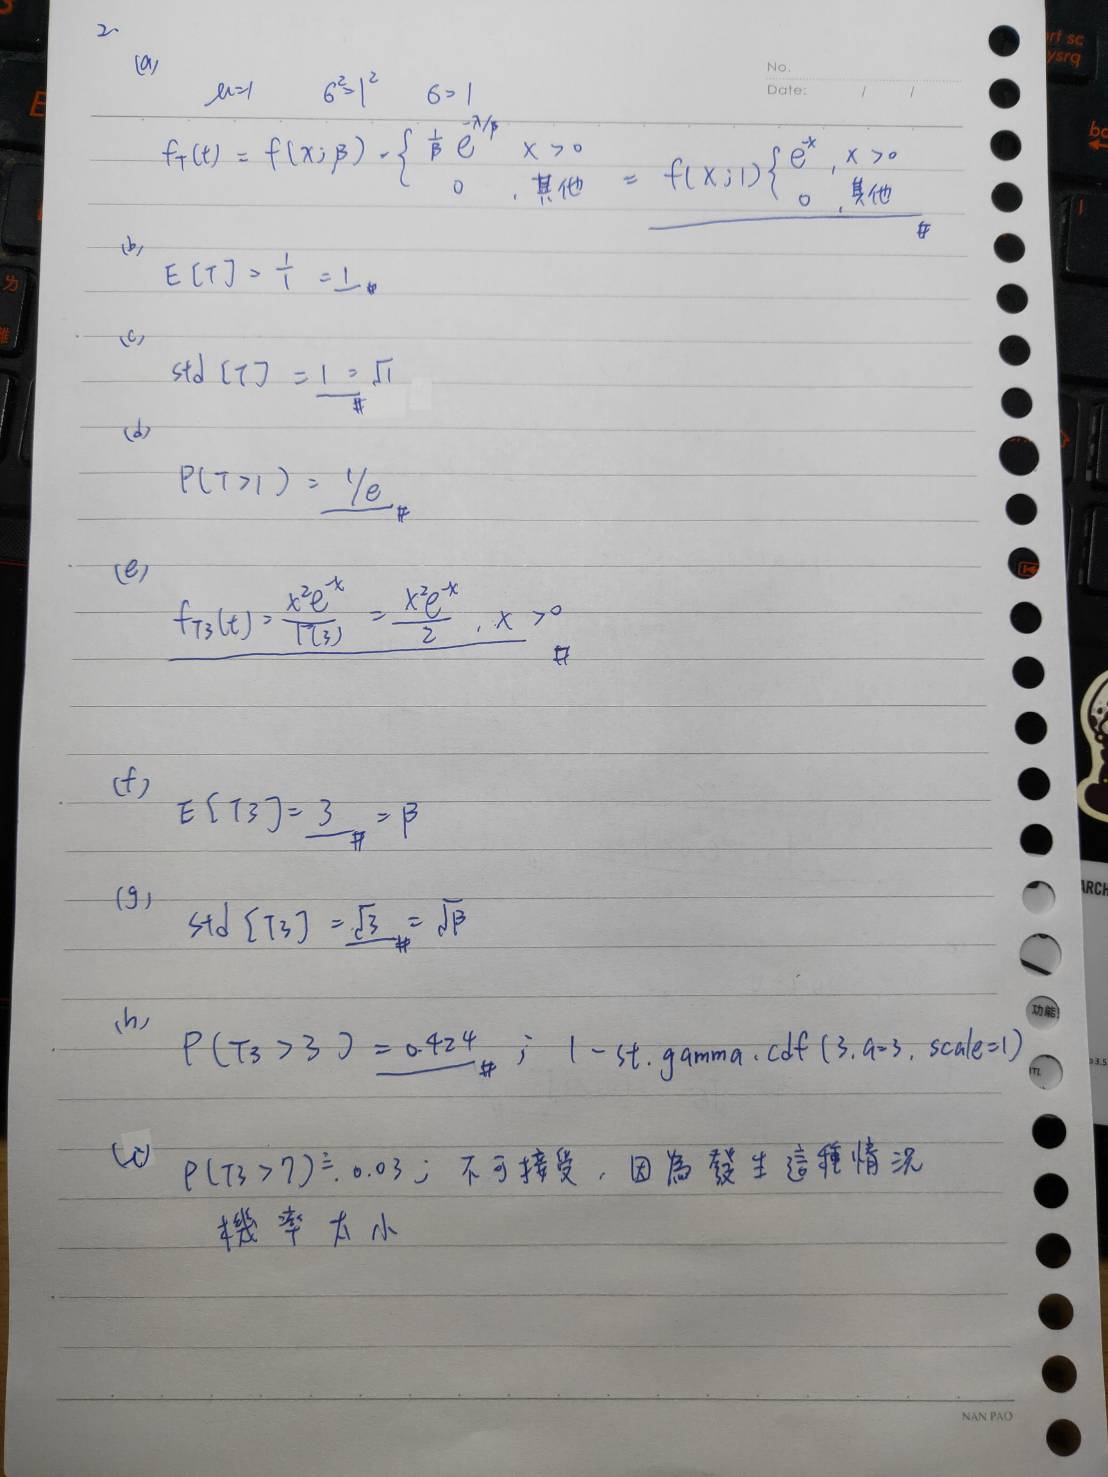 2.
(a)
No.
Date: / /
μ=1 6²=1² 6=1
f_T(t) = f(x;β) = { 1/β e^{-x/β} x>0
0 , 其他 = f(x;1) { e^{-x} , x>0
0 , 其他 #
(b)
E[T] = 1/1 = 1 #
(c)
std[T] = 1 = √1 #
(d)
P(T>1) = 1/e #
(e)
f_{T3}(t) = x²e^{-x}/Γ(3) = x²e^{-x}/2 , x >0 #
(f)
E[T3] = 3 # = β
(g)
std[T3] = √3 # = √β
(h)
P(T3>3) = 0.424 # ; 1-st.gamma.cdf(3,a=3,scale=1)
(i)
P(T3>7)≒0.03; 不可接受,因為發生這種情況
機率太小
NAN PAO
功能
ARCH